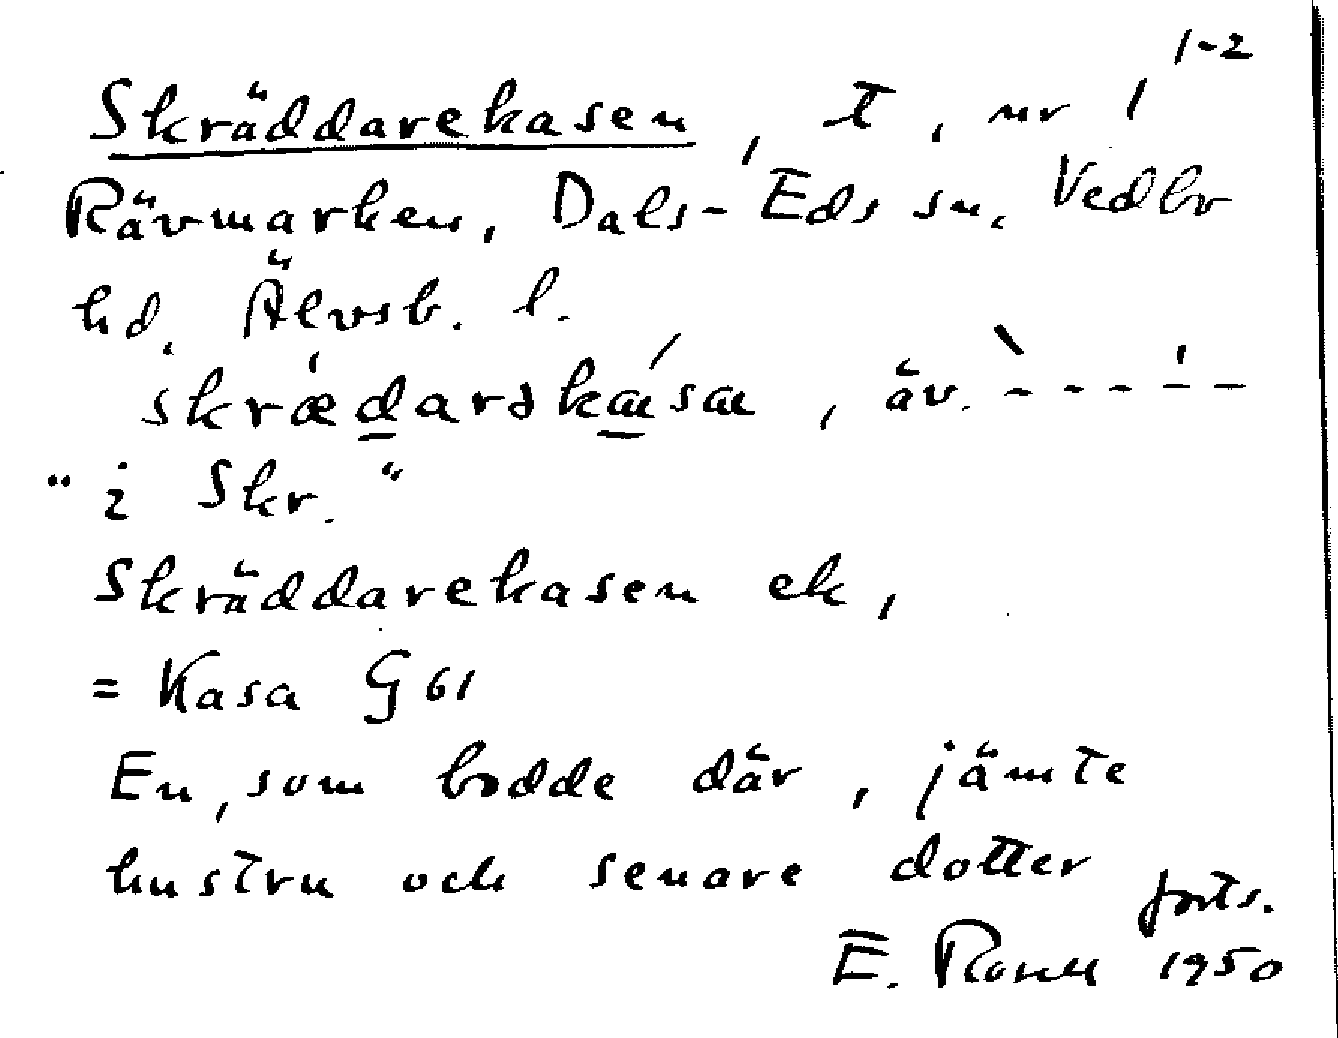 1-2
Skräddarekasen, t, nr 1
Rävmarken, Dals-Eds sn, Vedbr
hd. Älvsb. l.
äv. ` - - - ' - -
"i Skr."
Skräddarekasen ek,
= Kasa G 61
En, som bodde där, jämte
hustru och senare dotter
forts.
E. 1950